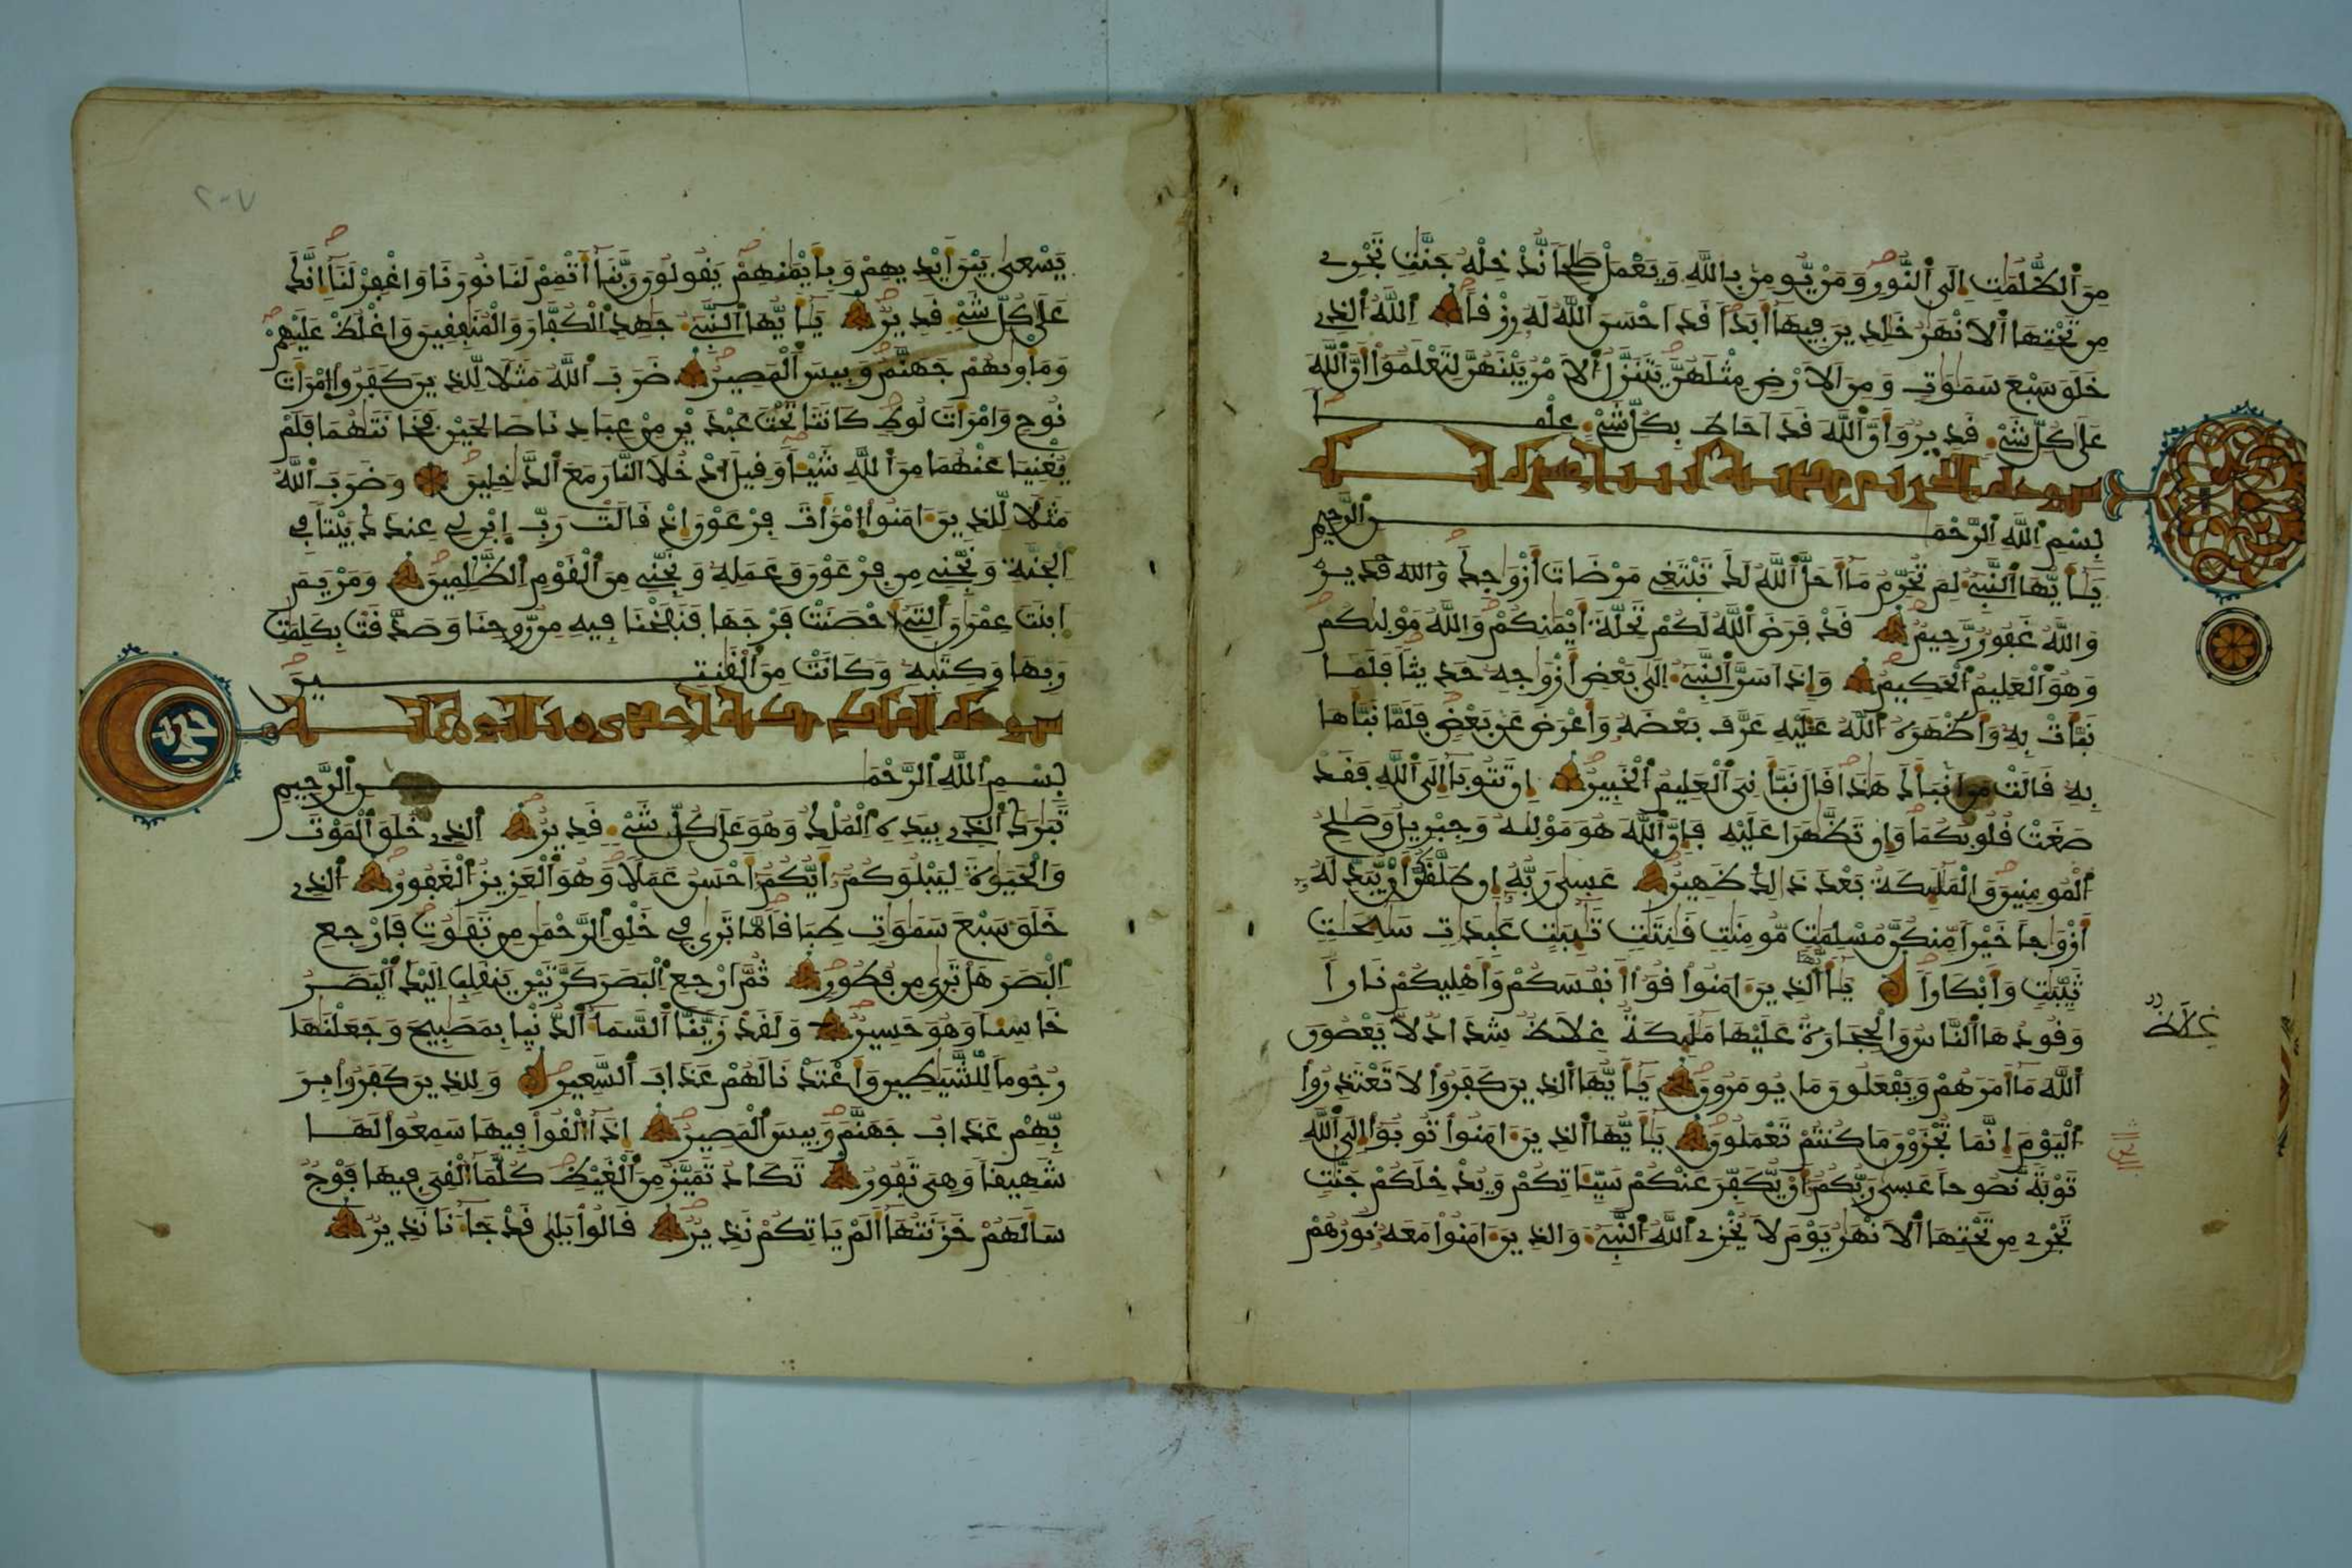 مِنَ ٱلظُّلُمَٰتِ إِلَى ٱلنُّورِ وَمَنْ يُّومِنۢ بِاللَّهِ وَيَعْمَلْ صَٰلِحاً نُّدْخِلْهُ جَنَّٰتٍ تَجْرِے
مِن تَحْتِهَا ٱلَانْهَٰرُ خَٰلِدِينَ فِيهَا أَبَداً قَدَ احْسَنَ ٱللَّهُ لَهُ رِزْقاً ٱللَّهُ ٱلذِے
خَلَقَ سَبْعَ سَمَٰوَٰتٍ وَمِنَ ٱلَارْضِ مِثْلَهُنَّ يَتَنَزَّلُ ٱلَامْرُ بَيْنَهُنَّ لِتَعْلَمُوٓاْ أَنَّ ٱللَّهَ
عَلَىٰ كُلِّ شَےْءٍ قَدِيرٌ وَأَنَّ ٱللَّهَ قَدَ احَاطَ بِكُلِّ شَےْءٍ عِلْماً
بِسْمِ ٱللَّهِ ٱلرَّحْمَٰنِ ٱلرَّحِيمِ
يَٰٓأَيُّهَا ٱلنَّبِےٓءُ لِمَ تُحَرِّمُ مَآ أَحَلَّ ٱللَّهُ لَكَ تَبْتَغِے مَرْضَاتَ أَزْوَٰجِكَ والله قدير
وَاللَّهُ غَفُورٌ رَّحِيمٌ قَدْ فَرَضَ ٱللَّهُ لَكُمْ تَحِلَّةَ أَيْمَٰنِكُمْ وَاللَّهُ مَوْلَىٰكُمْ
وَهُوَ ٱلْعَلِيمُ ٱلْحَكِيمُ وَإِذَ اسَرَّ ٱلنَّبِےٓءُ إِلَىٰ بَعْضِ أَزْوَٰجِهِ حَدِيثاً فَلَمَّا
نَبَّأَتْ بِهِ وَأَظْهَرَهُ ٱللَّهُ عَلَيْهِ عَرَّفَ بَعْضَهُ وَأَعْرَضَ عَنۢ بَعْضٍ فَلَمَّا نَبَّأَهَا
بِهِ قَالَتْ مَنَ انۢبَأَكَ هَٰذَا قَالَ نَبَّأَنِىَ ٱلْعَلِيمُ ٱلْخَبِيرُ إِن تَتُوبَآ إِلَى ٱللَّهِ فَقَدْ
صَغَتْ قُلُوبُكُمَا وَإِن تَظَّٰهَرَا عَلَيْهِ فَإِنَّ ٱللَّهَ هُوَ مَوْلَىٰهُ وَجِبْرِيلُ وَصَٰلِحُ
ٱلْمُومِنِينَ وَالْمَلَٰٓئِكَةُ بَعْدَ ذَٰلِكَ ظَهِيرٌ عَسَىٰ رَبُّهُ إِن طَلَّقَكُنَّ أَنْ يُّبَدِّلَهُ
أَزْوَٰجاً خَيْراً مِّنكُنَّ مُسْلِمَٰتٍ مُّومِنَٰتٍ قَٰنِتَٰتٍ تَٰٓئِبَٰتٍ عَٰبِدَٰتٍ سَٰٓئِحَٰتٍ
ثَيِّبَٰتٍ وَأَبْكَاراً يَٰٓأَيُّهَا ٱلذِينَ ءَامَنُواْ قُوٓاْ أَنفُسَكُمْ وَأَهْلِيكُمْ نَاراً
وَقُودُهَا ٱلنَّاسُ وَالْحِجَارَةُ عَلَيْهَا مَلَٰٓئِكَةٌ غِلَاظٌ شِدَادٌ لَّا يَعْصُونَ
غِلَاظٌ
ٱللَّهَ مَآ أَمَرَهُمْ وَيَفْعَلُونَ مَا يُومَرُونَ يَٰٓأَيُّهَا ٱلذِينَ كَفَرُواْ لَا تَعْتَذِرُواْ
ٱلْيَوْمَ إِنَّمَا تُجْزَوْنَ مَا كُنتُمْ تَعْمَلُونَ يَٰٓأَيُّهَا ٱلذِينَ ءَامَنُواْ تُوبُوٓاْ إِلَى ٱللَّهِ
تَوْبَةً نَّصُوحاً عَسَىٰ رَبُّكُمُ أَنْ يُّكَفِّرَ عَنكُمْ سَيِّـَٔاتِكُمْ وَيُدْخِلَكُمْ جَنَّٰتٍ
تَجْرِے مِن تَحْتِهَا ٱلَانْهَٰرُ يَوْمَ لَا يُخْزِے ٱللَّهُ ٱلنَّبِےٓءَ وَالذِينَ ءَامَنُواْ مَعَهُ نُورُهُمْ
٢٠٧
يَسْعَىٰ بَيْنَ أَيْدِيهِمْ وَبِأَيْمَٰنِهِمْ يَقُولُونَ رَبَّنَآ أَتْمِمْ لَنَا نُورَنَا وَاغْفِرْ لَنَآ إِنَّكَ
عَلَىٰ كُلِّ شَےْءٍ قَدِيرٌ يَٰٓأَيُّهَا ٱلنَّبِےٓءُ جَٰهِدِ ٱلْكُفَّارَ وَالْمُنَٰفِقِينَ وَاغْلُظْ عَلَيْهِمْ
وَمَأْوَىٰهُمْ جَهَنَّمُ وَبِيسَ ٱلْمَصِيرُ ضَرَبَ ٱللَّهُ مَثَلاً لِّلذِينَ كَفَرُواْ اَمْرَأَتَ
نُوحٍ وَامْرَأَتَ لُوطٍ كَانَتَا تَحْتَ عَبْدَيْنِ مِنْ عِبَادِنَا صَٰلِحَيْنِ فَخَانَتَٰهُمَا فَلَمْ
يُغْنِيَا عَنْهُمَا مِنَ ٱللَّهِ شَيْـٔاً وَقِيلَ ٱدْخُلَا ٱلنَّارَ مَعَ ٱلدَّٰخِلِينَ وَضَرَبَ ٱللَّهُ
مَثَلاً لِّلذِينَ ءَامَنُواْ اَمْرَأَتَ فِرْعَوْنَ إِذْ قَالَتْ رَبِّ اِبْنِ لِے عِندَكَ بَيْتاً فِے
ٱلْجَنَّةِ وَنَجِّنِے مِن فِرْعَوْنَ وَعَمَلِهِ وَنَجِّنِے مِنَ ٱلْقَوْمِ ٱلظَّٰلِمِينَ وَمَرْيَمَ
ٱبْنَتَ عِمْرَٰنَ ٱلتِےٓ أَحْصَنَتْ فَرْجَهَا فَنَفَخْنَا فِيهِ مِن رُّوحِنَا وَصَدَّقَتْ بِكَلِمَٰتِ
رَبِّهَا وَكِتَٰبِهِ وَكَانَتْ مِنَ ٱلْقَٰنِتِينَ
بِسْمِ ٱللَّهِ ٱلرَّحْمَٰنِ ٱلرَّحِيمِ
تَبَٰرَكَ ٱلذِے بِيَدِهِ ٱلْمُلْكُ وَهُوَ عَلَىٰ كُلِّ شَےْءٍ قَدِيرٌ ٱلذِے خَلَقَ ٱلْمَوْتَ
وَالْحَيَوٰةَ لِيَبْلُوَكُمُ أَيُّكُمُ أَحْسَنُ عَمَلاً وَهُوَ ٱلْعَزِيزُ ٱلْغَفُورُ ٱلذِے
خَلَقَ سَبْعَ سَمَٰوَٰتٍ طِبَاقاً مَّا تَرَىٰ فِے خَلْقِ ٱلرَّحْمَٰنِ مِن تَفَٰوُتٍ فَارْجِعِ
ٱلْبَصَرَ هَلْ تَرَىٰ مِن فُطُورٍ ثُمَّ ٱرْجِعِ ٱلْبَصَرَ كَرَّتَيْنِ يَنقَلِبِ اِلَيْكَ ٱلْبَصَرُ
خَاسِئاً وَهُوَ حَسِيرٌ وَلَقَدْ زَيَّنَّا ٱلسَّمَآءَ ٱلدُّنْيَا بِمَصَٰبِيحَ وَجَعَلْنَٰهَا
رُجُوماً لِّلشَّيَٰطِينِ وَأَعْتَدْنَا لَهُمْ عَذَابَ ٱلسَّعِيرِ وَلِلذِينَ كَفَرُواْ بِرَ
بِّهِمْ عَذَابُ جَهَنَّمَ وَبِيسَ ٱلْمَصِيرُ إِذَآ أُلْقُواْ فِيهَا سَمِعُواْ لَهَا
شَهِيقاً وَهِىَ تَفُورُ تَكَادُ تَمَيَّزُ مِنَ ٱلْغَيْظِ كُلَّمَآ أُلْقِىَ فِيهَا فَوْجٌ
سَأَلَهُمْ خَزَنَتُهَآ أَلَمْ يَاتِكُمْ نَذِيرٌ قَالُواْ بَلَىٰ قَدْ جَآءَنَا نَذِيرٌ